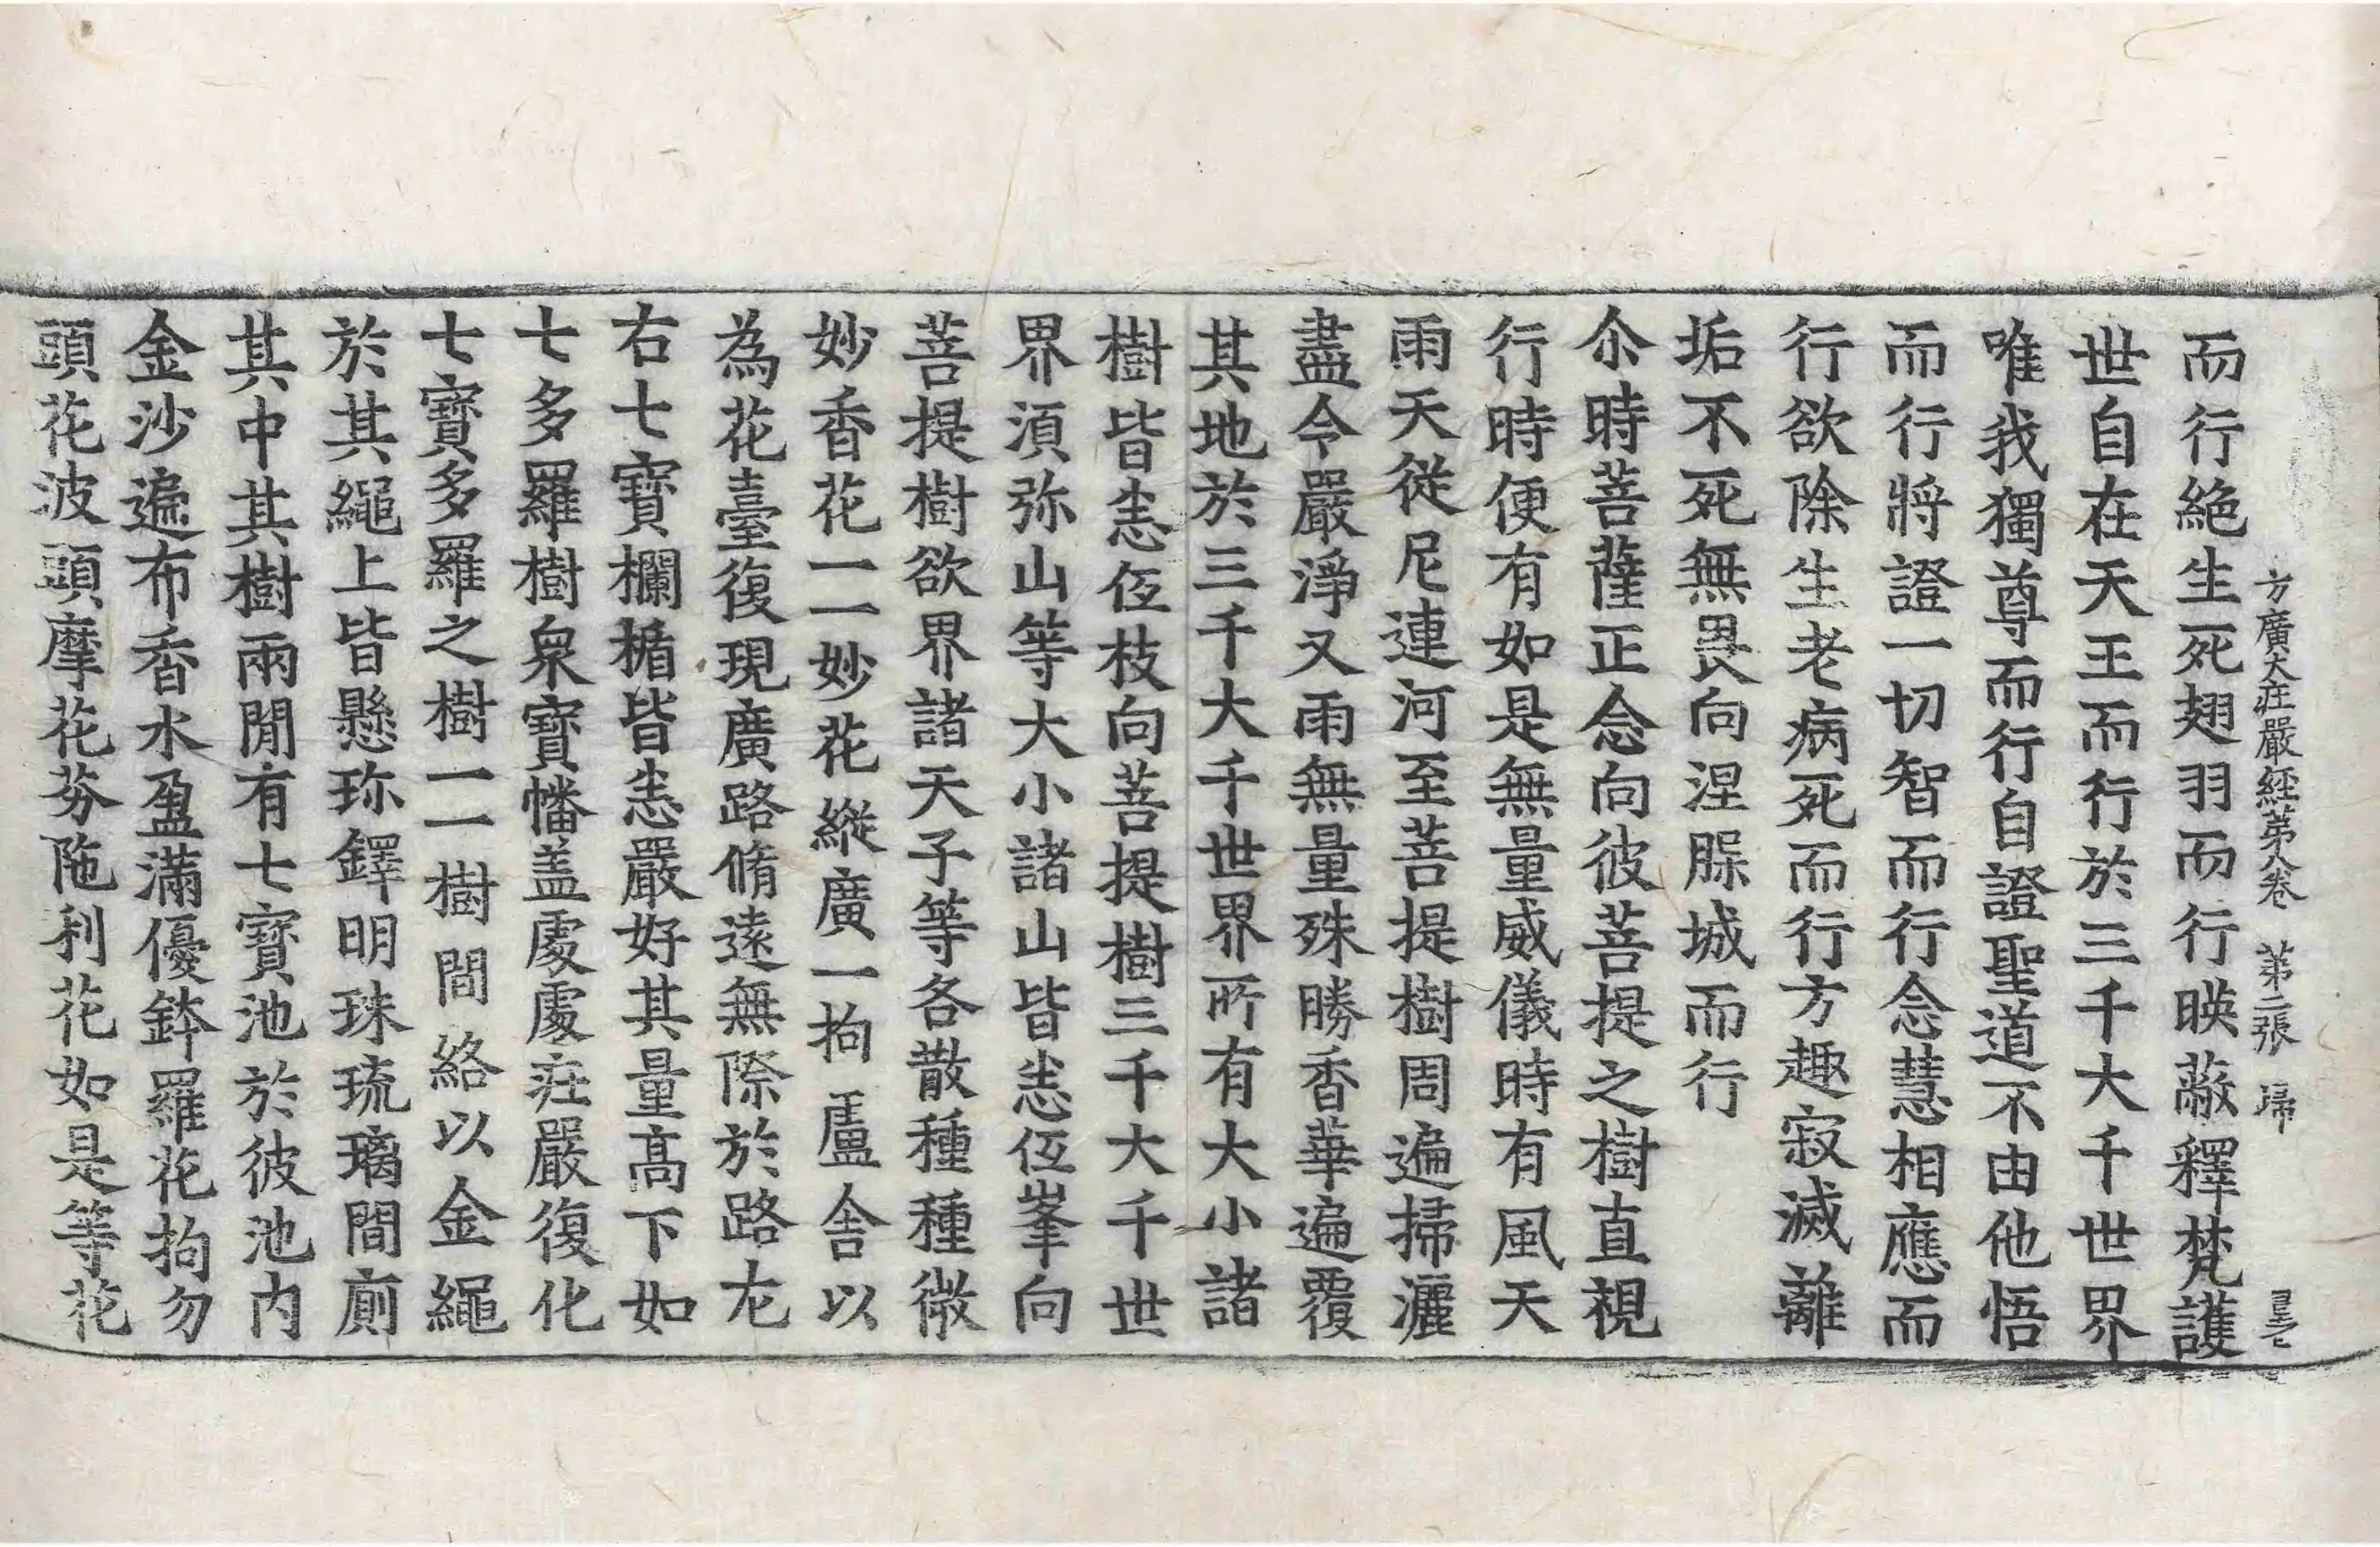 方廣大庄嚴經苐八卷 苐二張 㱕
而行絶生死翅羽而行暎蔽釋梵護
世自在天王而行於三千大千世界
唯我獨尊而行自證聖道不由他悟
而行將證一切智而行念慧相應而
行欲除生老病死而行方趣寂滅離
垢不死無畏向涅槃城而行
尒時菩薩正念向彼菩提之樹直視
行時便有如是無量威儀時有風天
雨天從尼連河至菩提樹周遍掃灑
盡令嚴淨又雨無量殊勝香華遍覆
其地於三千大千世界所有大小諸
樹皆悉伍枝向菩提樹三千大千世
界湏弥山等大小諸山皆悉伍峯向
菩提樹欲界諸天子等各散種種微
妙香花一一妙花縱廣一拘盧舍以
為花臺復現廣路脩遠無際於路左
右七寶欄楯皆悉嚴好其量高下如
七多羅樹衆寶幡盖處處庄嚴復化
七寶多羅之樹一一樹間絡以金繩
於其繩上皆懸珎鐸明珠琉璃間廁
其中其樹兩閒有七寶池於彼池内
金沙遍布香水盈滿優鉢羅花拘勿
頭花波頭摩花芬陁利花如是等花